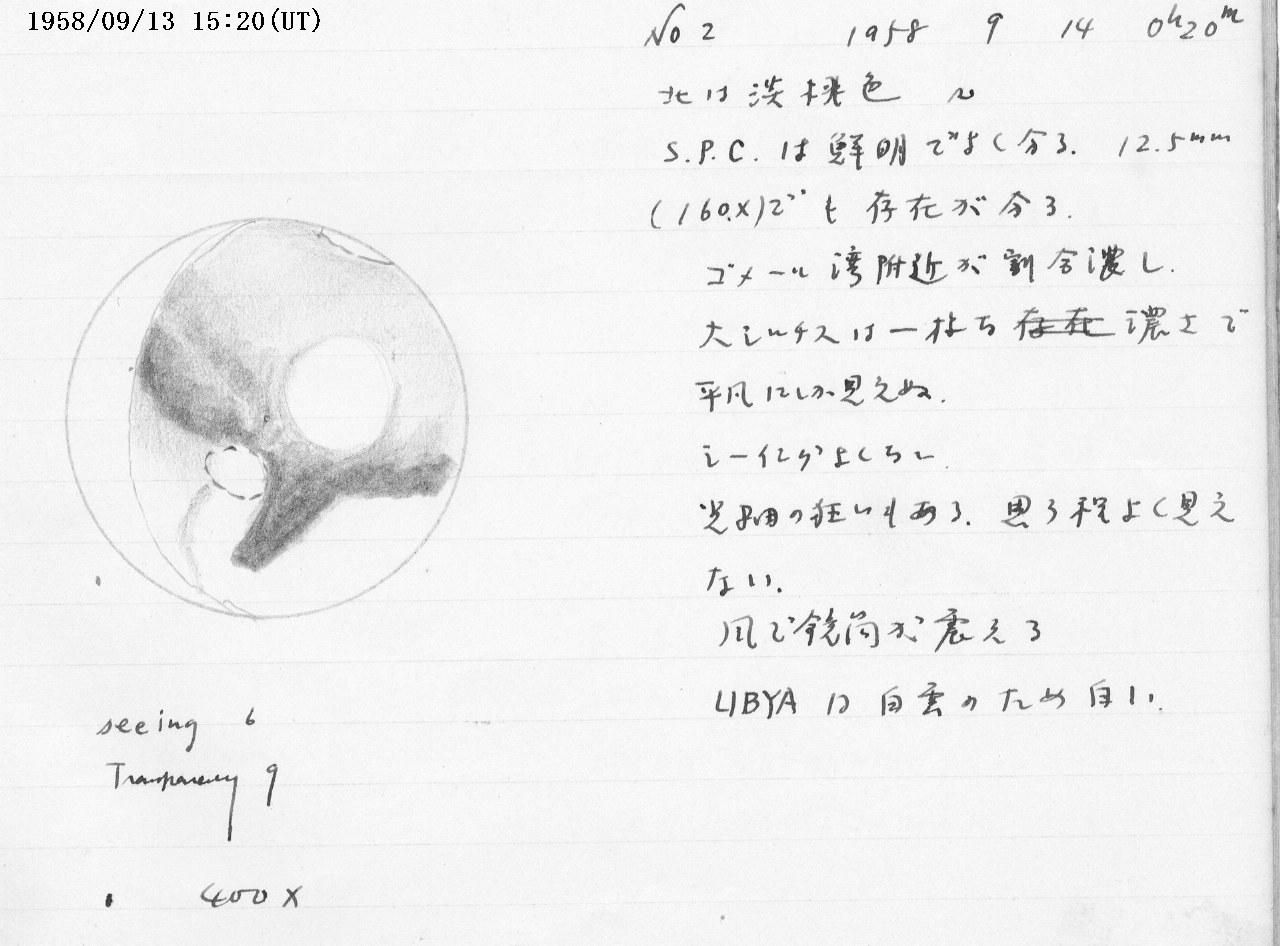 1958/09/13 15:20(UT)
No 2 1958 9 14 0h20m
北は淡桃色
S.P.C. は鮮明でよく分る. 12.5mm
(160X)でも存在が分る.
ゴメール湾附近が割合濃し.
大シルチスは一様な 存在 濃さで
平凡にしか見えぬ.
シーイングよくない.
光軸の狂いもある. 思う程よく見え
ない.
風で鏡筒が震える
LIBYA は白雲のため白い.
seeing 6
Transparency 9
400 X